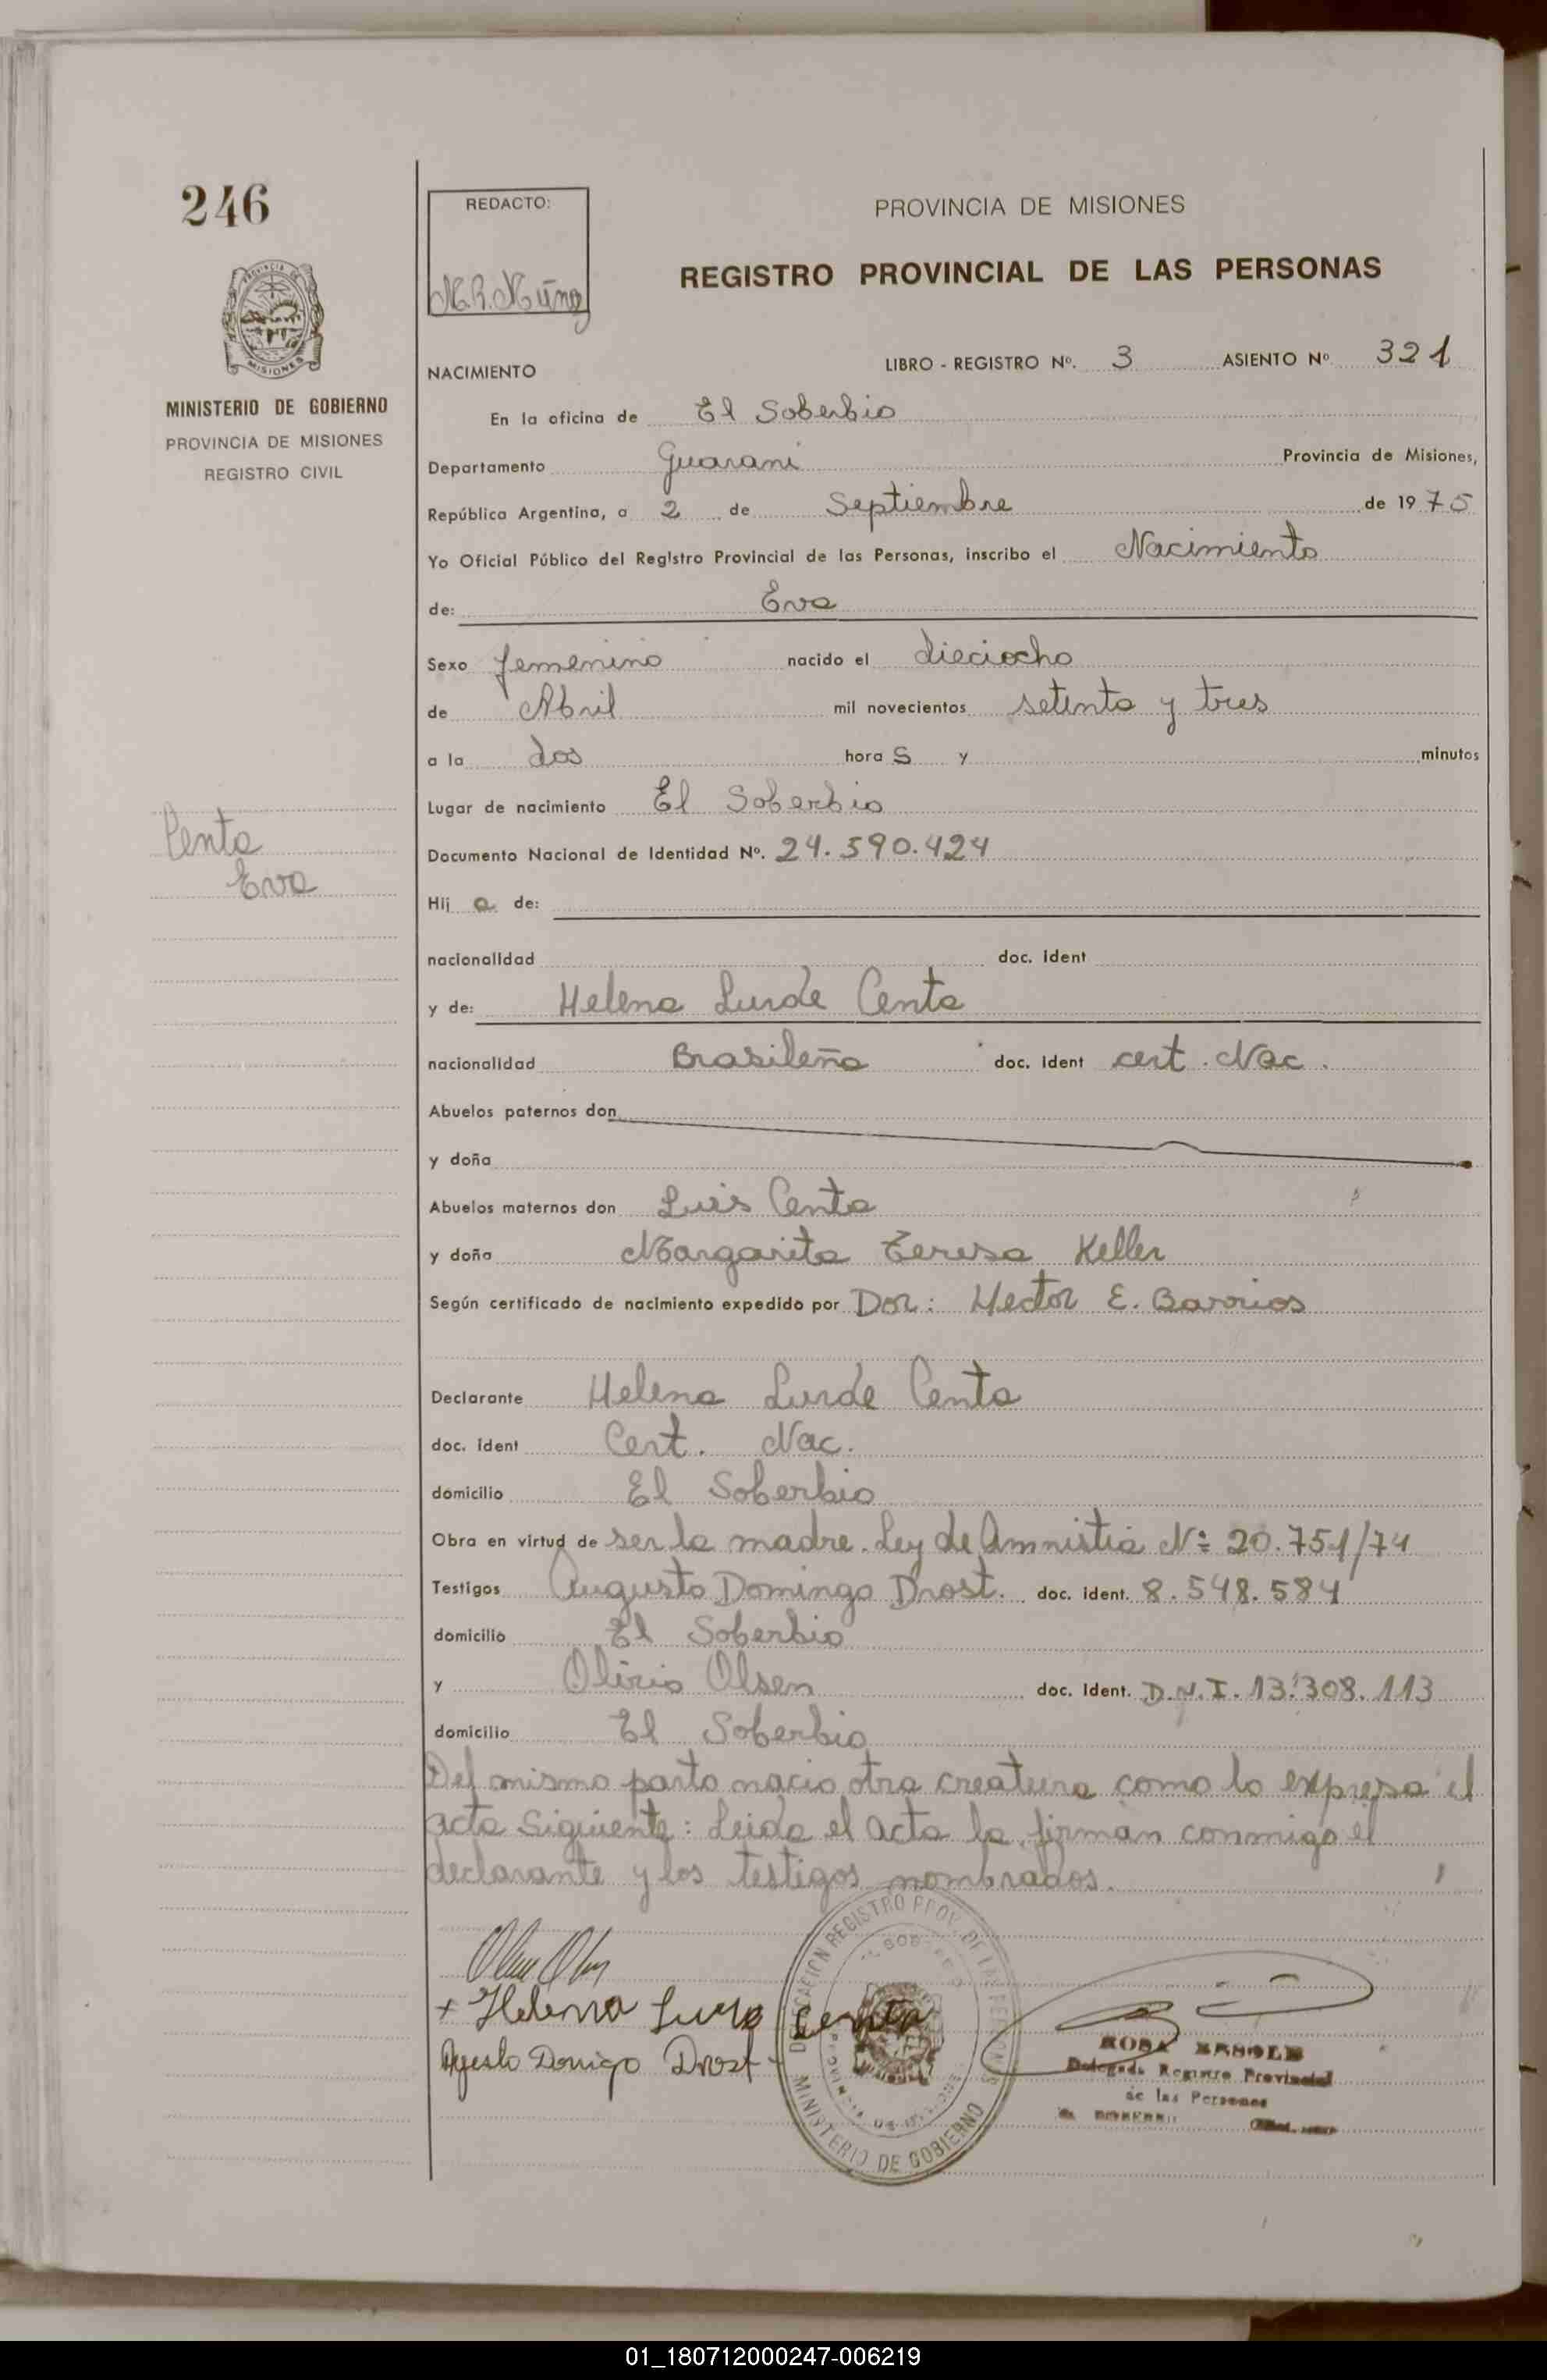 246
REDACTO:
PROVINCIA DE MISIONES
REGISTRO PROVINCIAL DE LAS PERSONAS
PROVINCIA DE
MISIONES
M.R. Múnoz
MINISTERIO DE GOBIERNO
PROVINCIA DE MISIONES
REGISTRO CIVIL
NACIMIENTO LIBRO - REGISTRO Nº. 3 ASIENTO Nº 321
En la oficina de El Soberbio
Departamento Guarani Provincia de Misiones,
República Argentina, a 2 de Septiembre de 1975
Yo Oficial Público del Registro Provincial de las Personas, inscribo el Nacimiento
de: Eva
Sexo femenino nacido el dieciocho
de Abril mil novecientos setenta y tres
a la dos hora s y minutos
Lugar de nacimiento El Soberbio
Centa
Eva
Documento Nacional de Identidad Nº. 24.590.424
Hij a de:
nacionalidad doc. ident
y de: Helena Lurde Centa
nacionalidad Brasileña doc. ident cert. Nac.
Abuelos paternos don
y doña
Abuelos maternos don Luis Centa
y doña Margarita Teresa Keller
Según certificado de nacimiento expedido por Dor: Hector E. Barrios
Declarante Helena Lurde Centa
doc. ident Cert. Nac.
domicilio El Soberbio
Obra en virtud de ser la madre. Ley de Amnistia Nº 20.751/74
Testigos Augusto Domingo Drost. doc. ident. 8.548.584
domicilio El Soberbio
y Olirio Olsen doc. ident. D.N.I. 13.308.113
domicilio El Soberbio
Del mismo parto nacio otra creatura como lo expresa el
acta siguiente: Leida el acta la firman conmigo el
declarante y los testigos nombrados.
+ Helena Centa
Domigo Drost
REGISTRO PROV. DE LAS PERSONAS
MINISTERIO DE GOBIERNO
ROSA
Delegada Registro Provincial
de las Personas
01_180712000247-006219